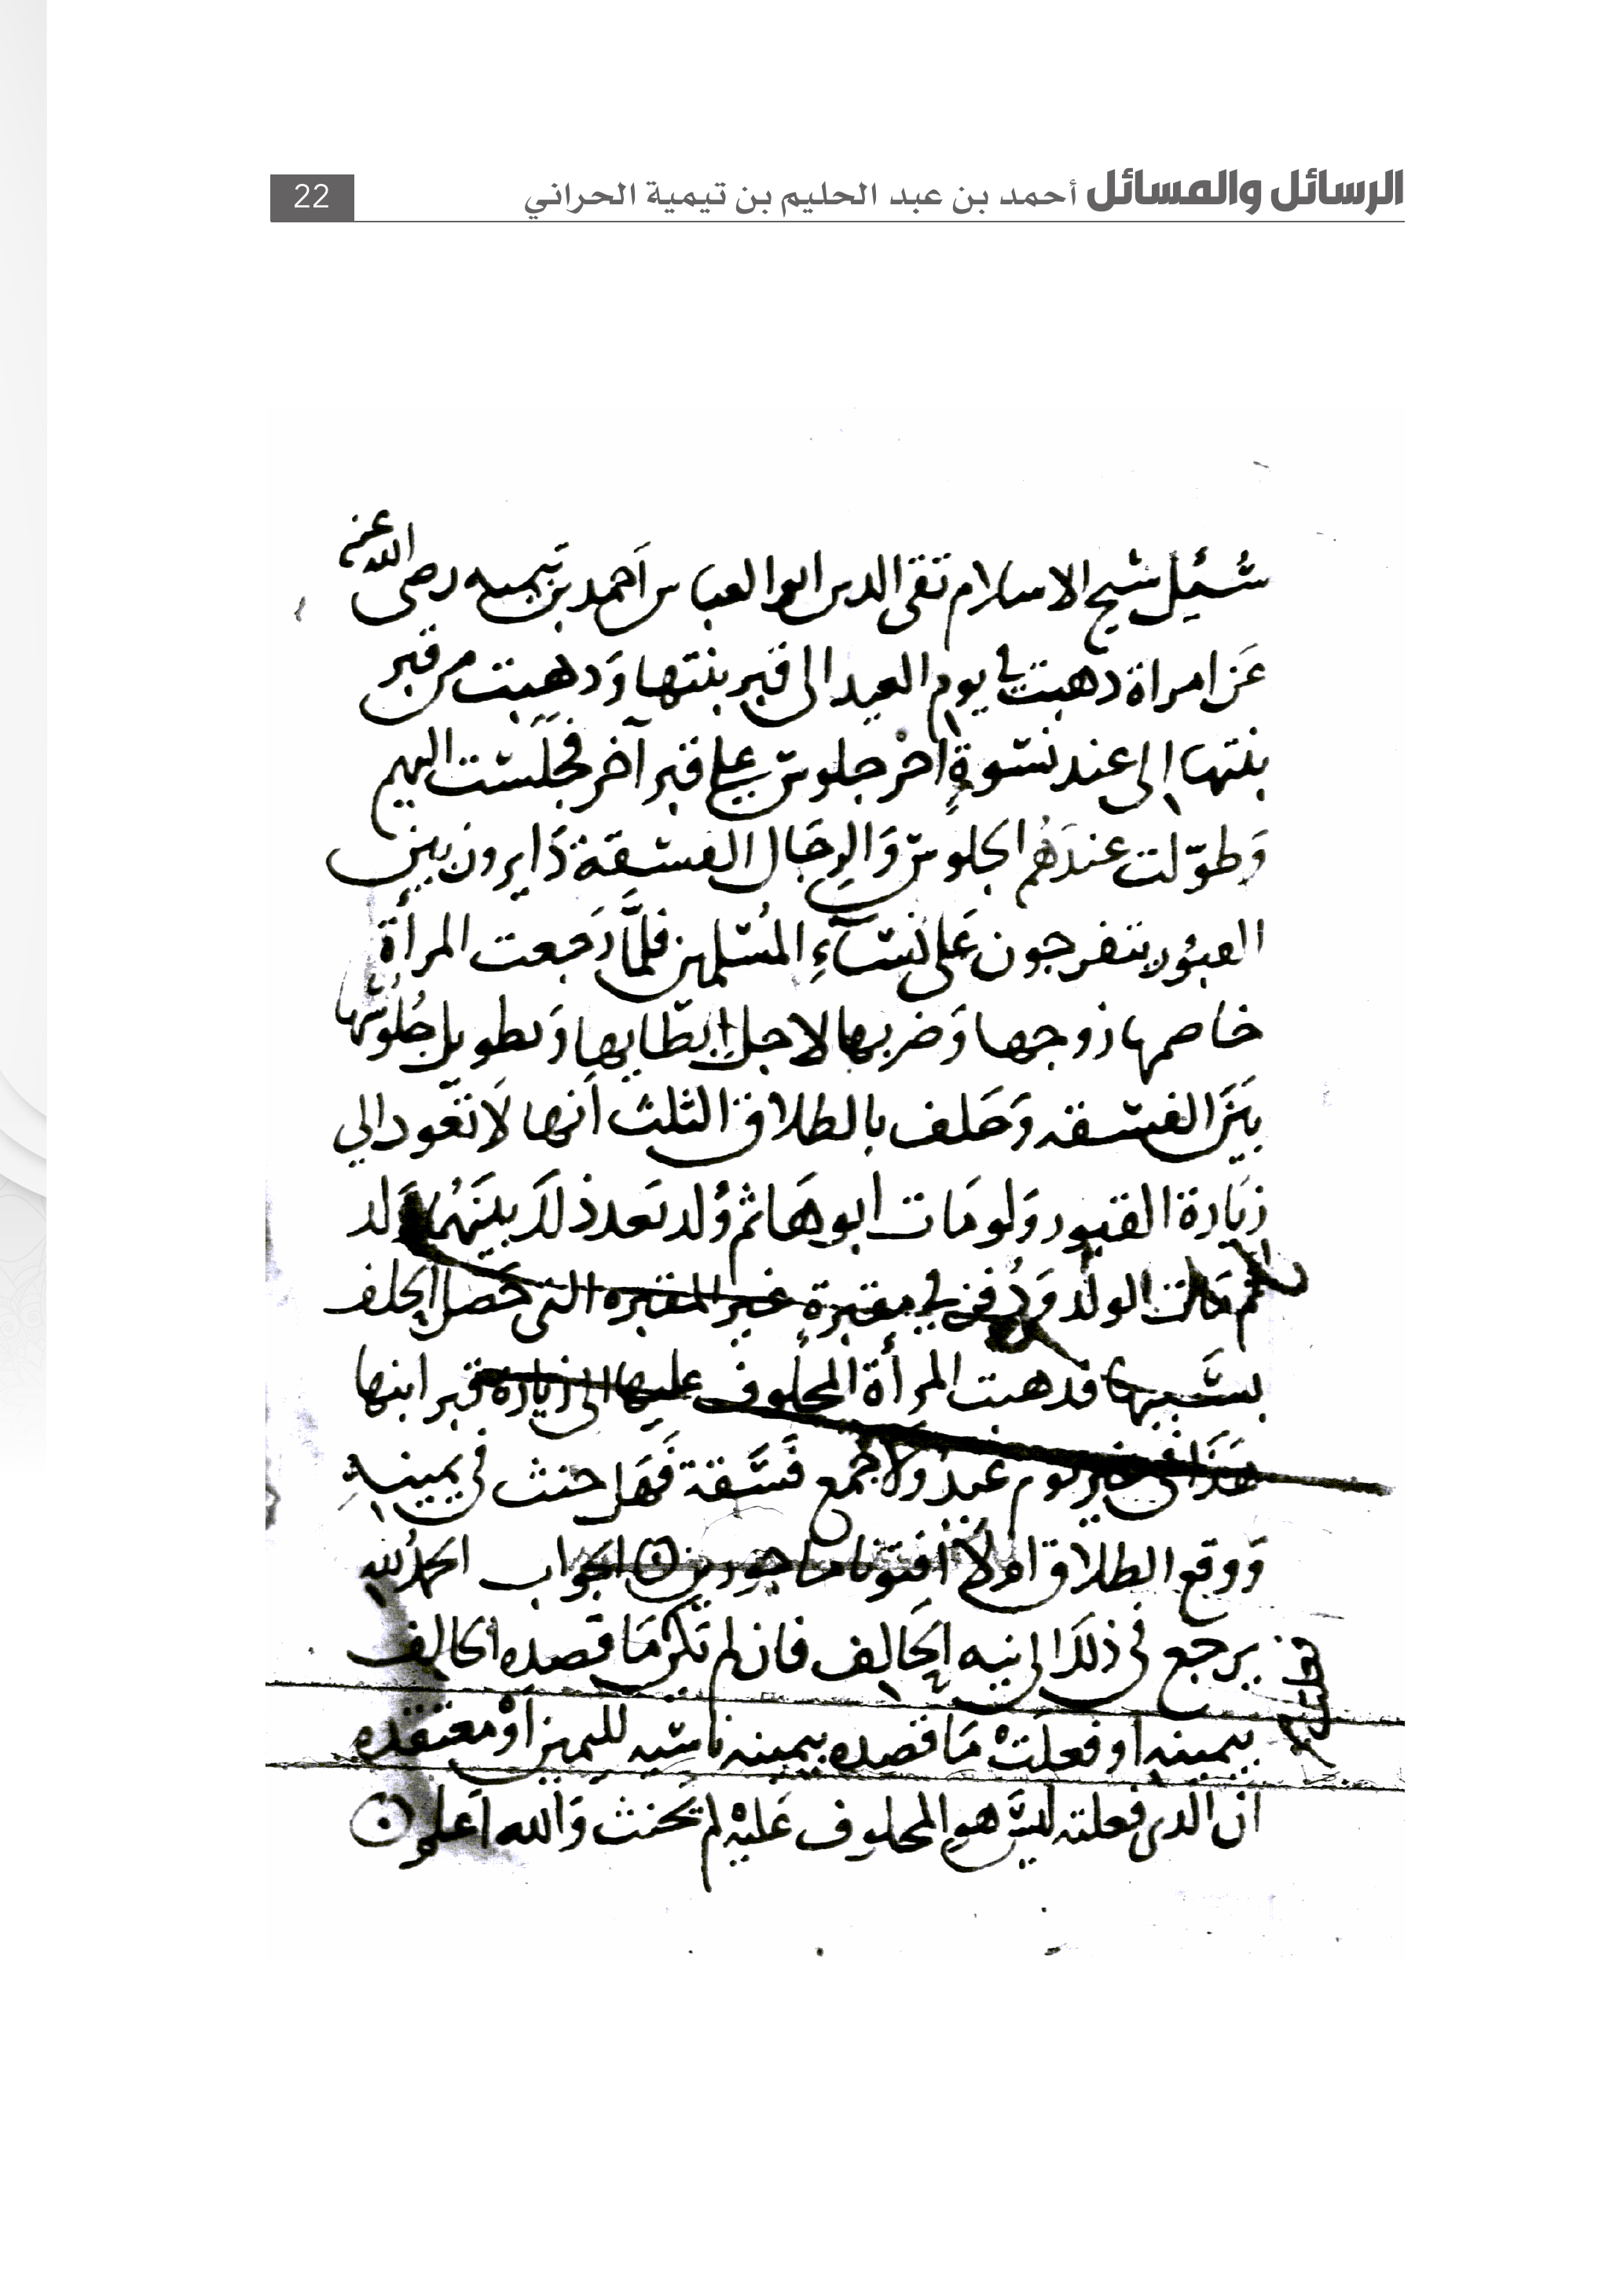 الرسائل والمسائل أحمد بن عبد الحليم بن تيمية الحراني
22
سُئيل شيخ الاسلام تقى الدين ابو العباس أحمد بن تيميه رضى الله عنه
عَن امراة ذهبت في يوم العيد الى قبر بنتها وَذهبت من قبر
بنتها الى عند نسوةٍ أخر جلوس على قبر آخر فجلست اليهم
وَطوّلت عندَهُم الجلوس وَالرجَال الفسقة دَايرون بين
القبُور يتفرجون عَلى نسَآءِ المُسلمين فلمَّا رَجعت المرأة
خاصمها زوجها وَضربها لاجل إبطايها وَتطويل جُلُوسها
بيَن الفسقه وَحَلف بالطلاق الثلث أنها لَا تعَود الى
زيَارة القبور وَلو مَات ابوها ثم وُلد بَعد ذلك بينَهُما وَلد
ثم مَات الولد وَدُفن في مقبرةٍ غير المقبره التى حَصل الحلف
بسَببها فذهبت المرأة المحلوف عليها الى زيارة قبر ابنها
هَذا في غير يوم عيد وَلا جمع فَسَقة فَهَل حنث في يمينهِ
وَوقع الطلاق ام لَا افتونا ماجورين الجواب الحمدُ لله
يرجع في ذلكَ الى نيه الحَالف فان لم تكن مَا قصده الحالف
بيمينه او فعلَتْ مَا قصده بيمينه ناسيه لليمين اوْ معتقده
أن الذى فعلته ليسَ هو المحلوف عَليْه لم تحنث وَالله أعلم